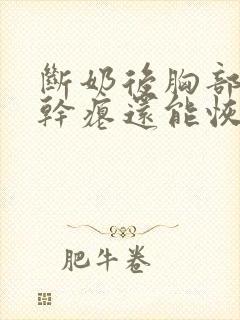 斷奶後胸部
幹癟還能恢
肥牛卷